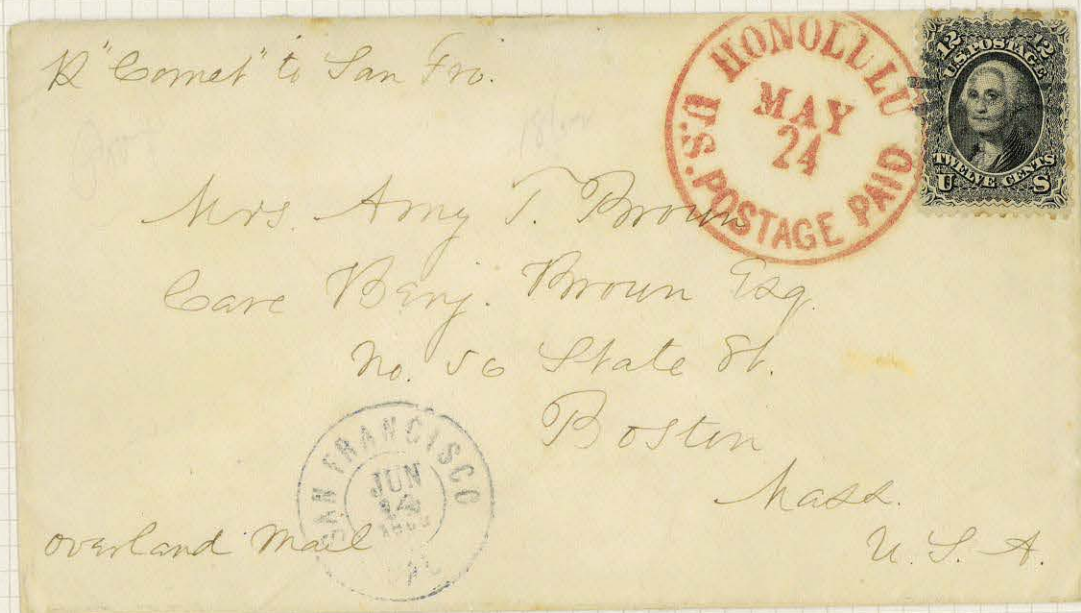 ℞ "Comet" to San Fro.
HONOLULU
MAY
24
U.S. POSTAGE PAID
12 12
U.S. POSTAGE
TWELVE CENTS
U S
Mrs. Amy T. Brown
Care Benj. Brown Esq.
No. 56 State St.
Boston
Mass.
U. S. A.
SAN FRANCISCO
JUN
14
CAL
Overland Mail